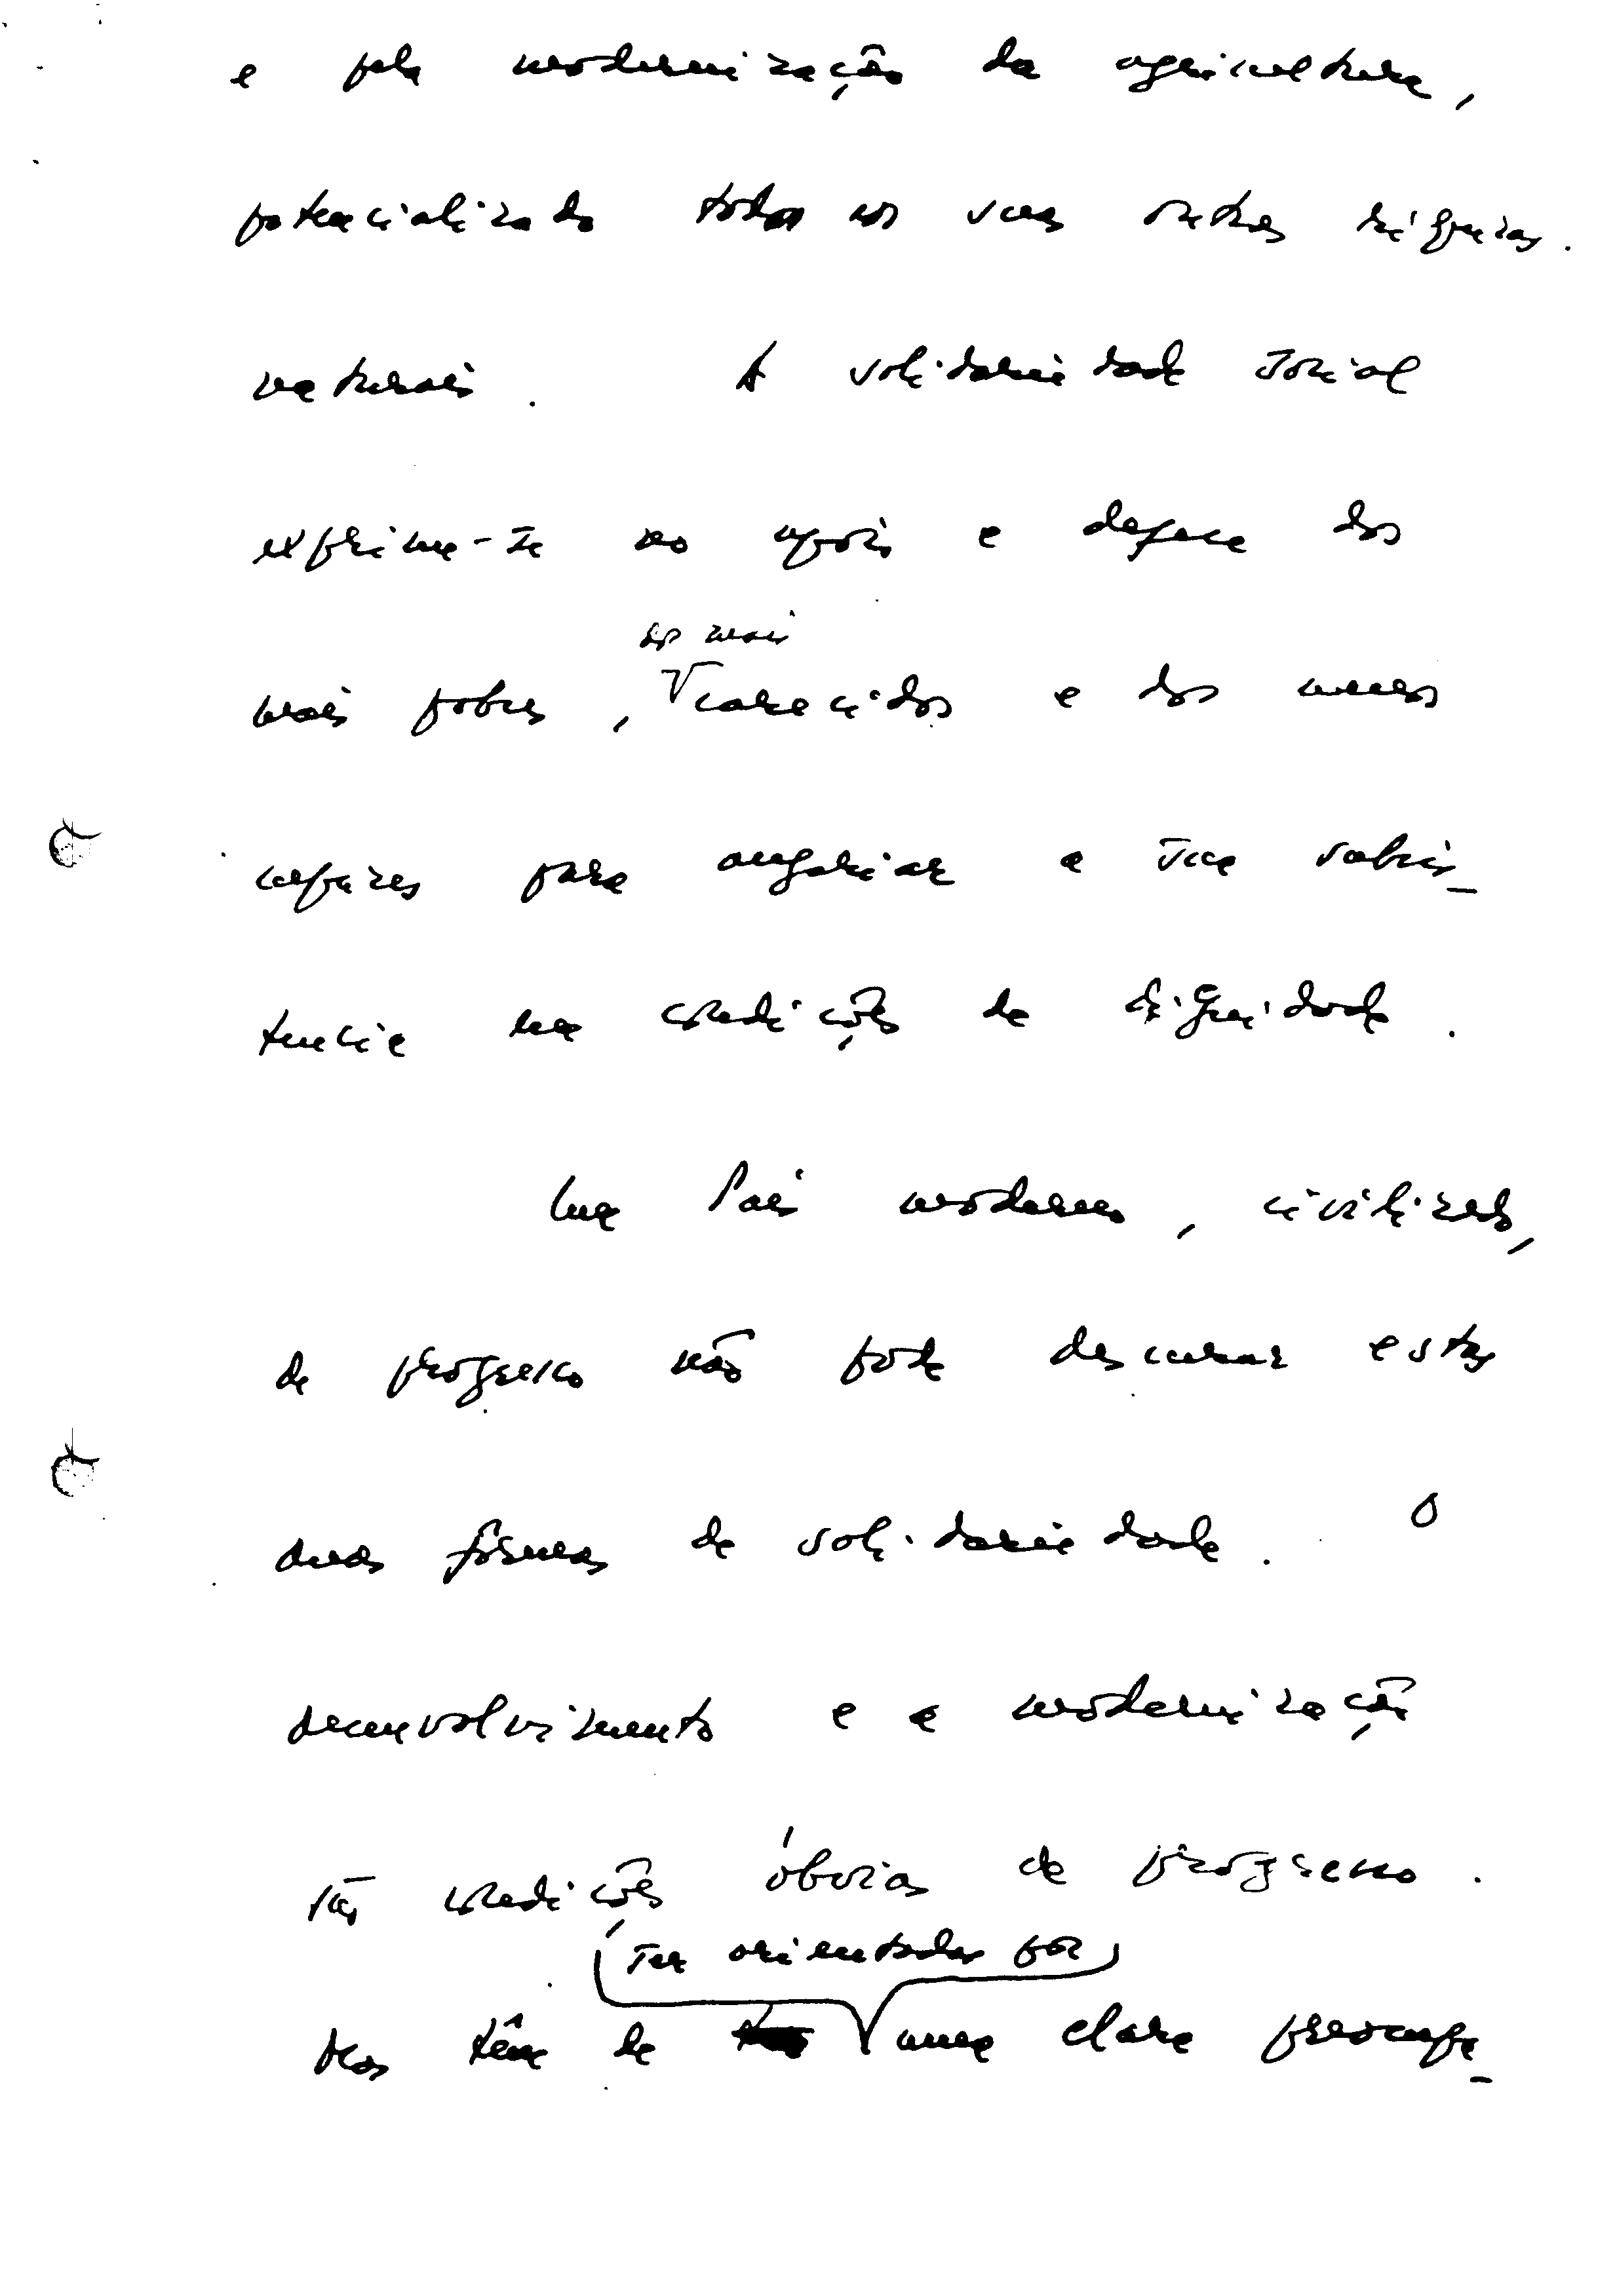 e pela modernização da agricultura,
potencializado todas as suas outras riquezas.
naturais. A solidariedade social
exprime-se no apoio e defesa dos
dos mais
mais pobres, carecidos e dos menos
capazes para angariar a sua subsis-
tência em condições de dignidade.
Um País moderno, civilizado,
de progresso não pode descurar estas
duas formas de solidariedade. O
desenvolvimento e a modernização
são condições óbvias de progresso.
ser orientadas por
Mas têm de uma clara preocupa-